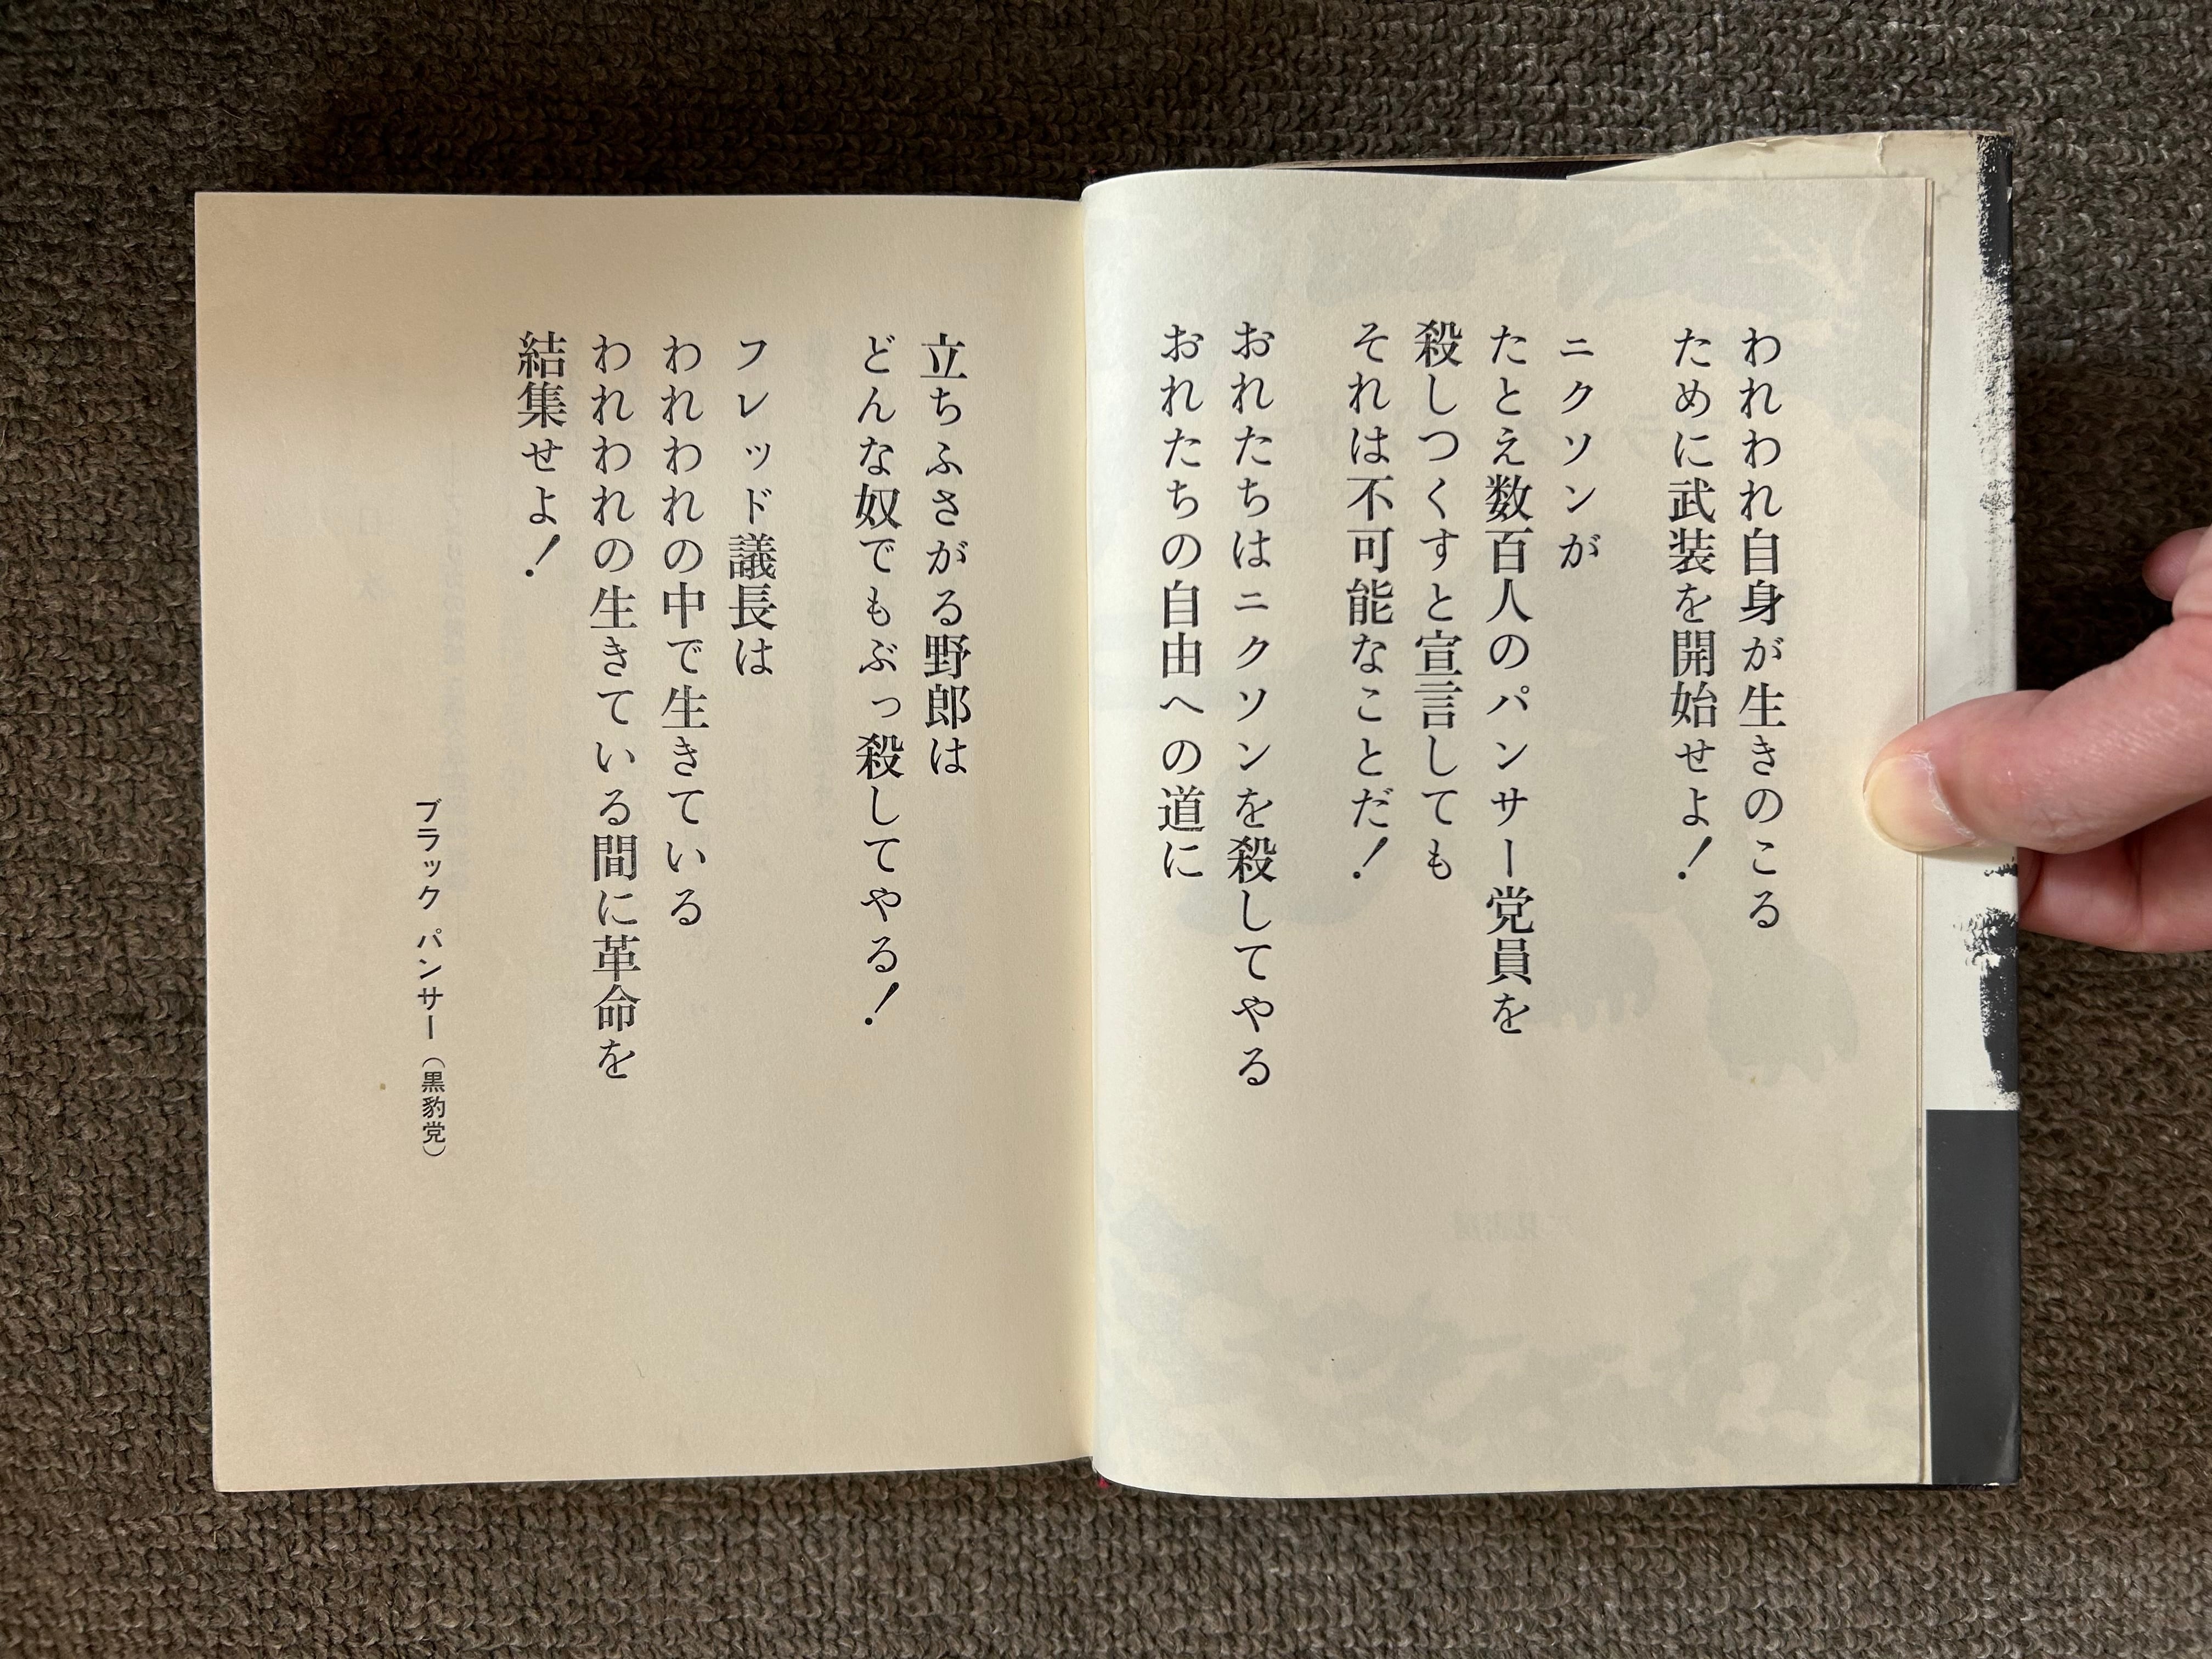 われわれ自身が生きのこる
ために武装を開始せよ！
ニクソンが
たとえ数百人のパンサー党員を
殺しつくすと宣言しても
それは不可能なことだ！
おれたちはニクソンを殺してやる
おれたちの自由への道に
立ちふさがる野郎は
どんな奴でもぶっ殺してやる！
フレッド議長は
われわれの中で生きている
われわれの生きている間に革命を
結集せよ！
ブラック パンサー（黒豹党）